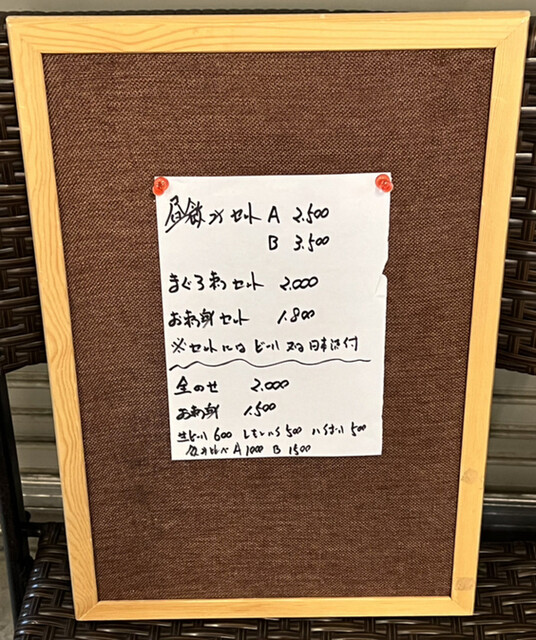 昼飲みセット A 2.500
B 3.500
まぐろ刺セット 2.000
お刺身セット 1.800
※セットには ビール 又は 日本酒付
全のせ 2.000
お刺身 1.500
生ビール 600 レモンハイ 500 ハイボール 500
飲み比べ A 1000 B 1500